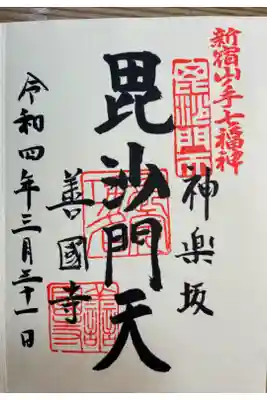 新宿山ノ手七福神
神楽坂
毘沙門天
善國寺
令和四年三月三十一日
毘沙門天